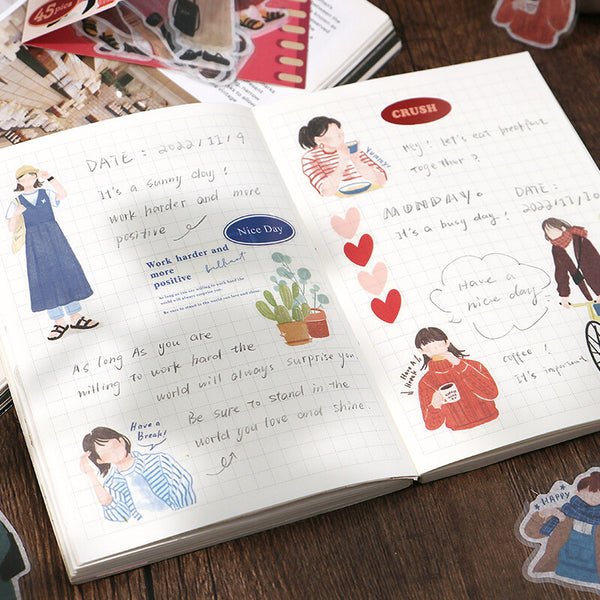 45pcs
DATE : 2022/11/9
It's a sunny day !
work harder and more
positive
Nice Day
Work harder and
more
positive
As long as you are willing to work hard the
world will always surprise you.
Be sure to stand in the world you love and shine.
As long As you are
willing to work hard the
world will always surprise you.
Be sure to stand in the
world you love and shine.
Have a
Break!
CRUSH
Hey! let's eat breakfast
together ?
Yummy!
MONDAY.
DATE :
2022/11/10
It's a busy day !
Have a
nice day
Have A
Break!
coffee !
It's important
HAPPY